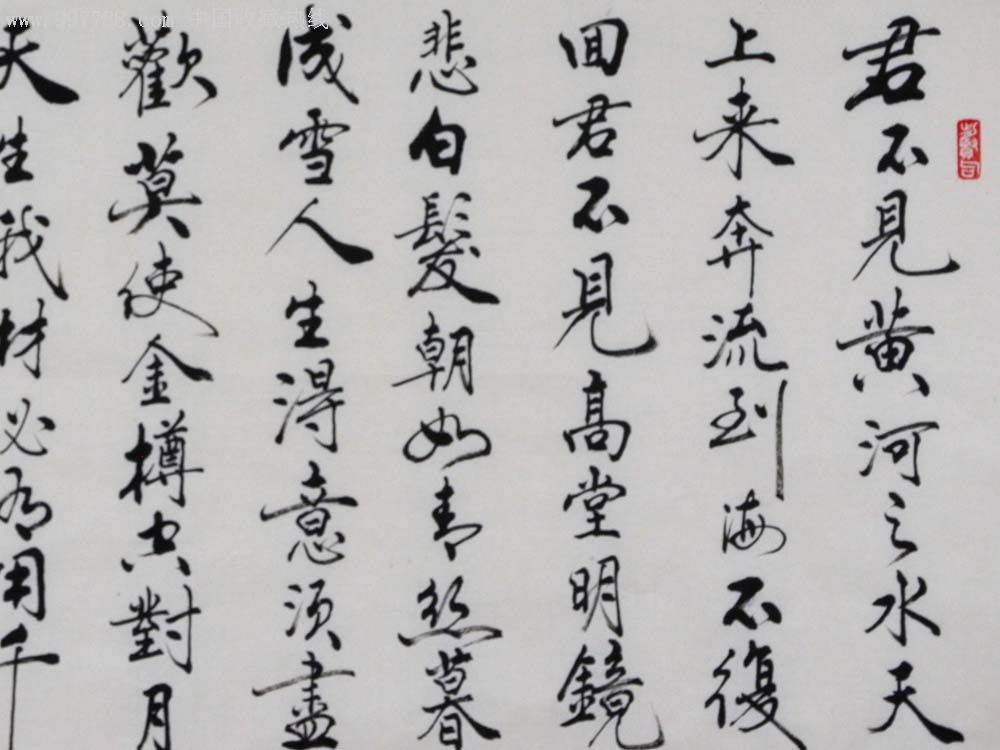 君不見黄河之水天
上来奔流到海不復
回君不見高堂明鏡
悲白髮朝如青絲暮
成雪人生得意須盡
歡莫使金樽空對月
天生我材必有用千